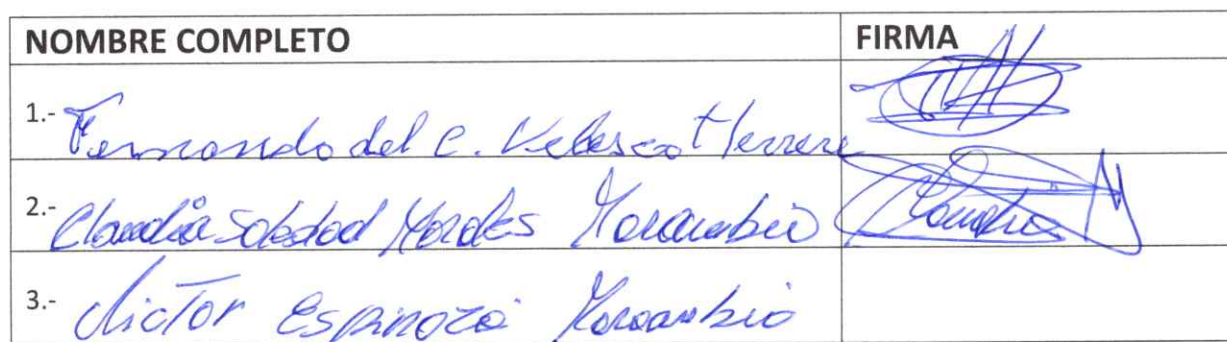 NOMBRE COMPLETO FIRMA
1.- Fernando del C. Velasco Herrera
2.- Claudia Soledad Morales Morambio Claudia M
3.- Victor Espinoza Morambio